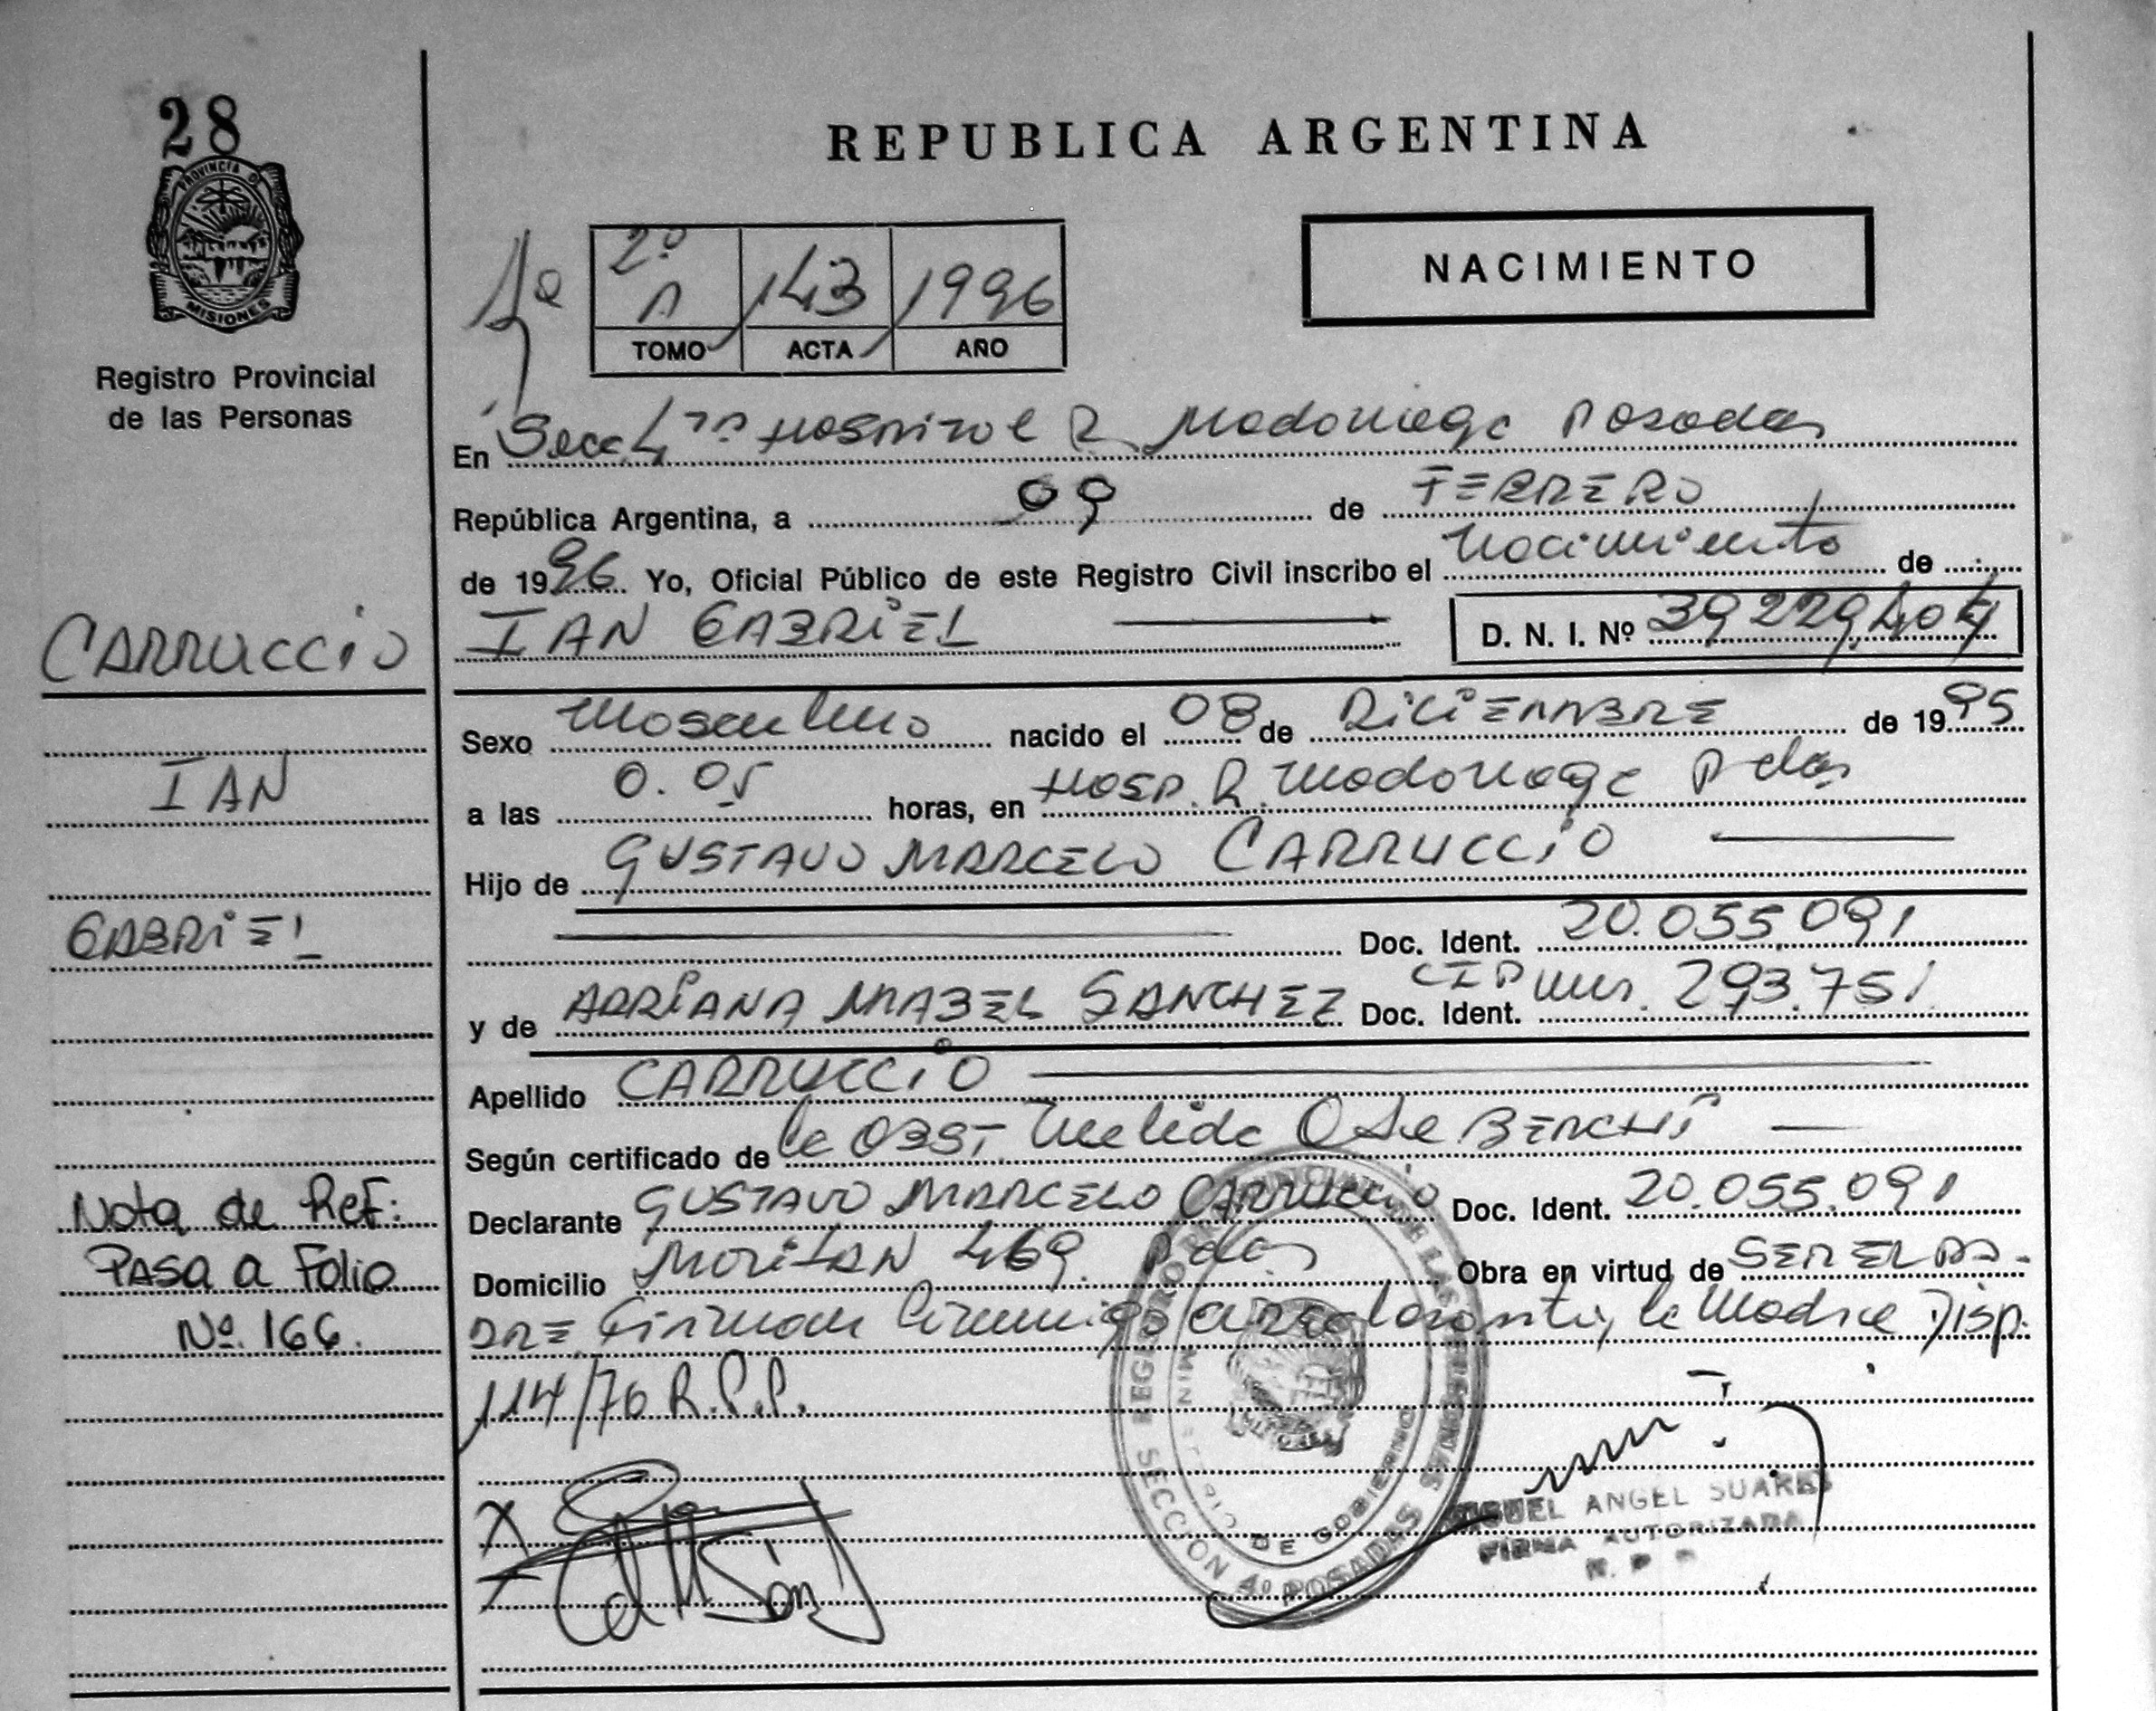 28
PROVINCIA DE
MISIONES
Registro Provincial
de las Personas
REPUBLICA ARGENTINA
NACIMIENTO
1º
2º A 143 1996
TOMO ACTA AÑO
En Secc 4ta Hospital R Madariaga Posadas
República Argentina, a 09 de FEBRERO
de 1996 Yo, Oficial Público de este Registro Civil inscribo el Nacimiento de
IAN GABRIEL D. N. I. Nº 39 229 404
CARRUCCIO
IAN
GABRIEL
Sexo Masculino nacido el 08 de DICIEMBRE de 1995
a las 0.05 horas, en Hosp. R. Madariaga Pdas
Hijo de GUSTAVO MARCELO CARRUCCIO
Doc. Ident. 20.055.091
y de ADRIANA MABEL SANCHEZ Doc. Ident. CIP Mns. 293.751
Apellido CARRUCCIO
Según certificado de la OBST. Nelida O de BIANCHI
Declarante GUSTAVO MARCELO CARRUCCIO Doc. Ident. 20.055.091
Domicilio 469 Pdas Obra en virtud de SER EL PA-
DRE Firman conmigo el declarante y la Madre Disp.
114/76 R.P.P.
Nota de Ref:
Pasa a Folio
Nº. 166.
REGISTRO PROVINCIAL DE LAS PERSONAS
MINISTERIO DE GOBIERNO
SECCION 4º POSADAS
MIGUEL ANGEL SUAREZ
FIRMA AUTORIZADA
R. P. P.